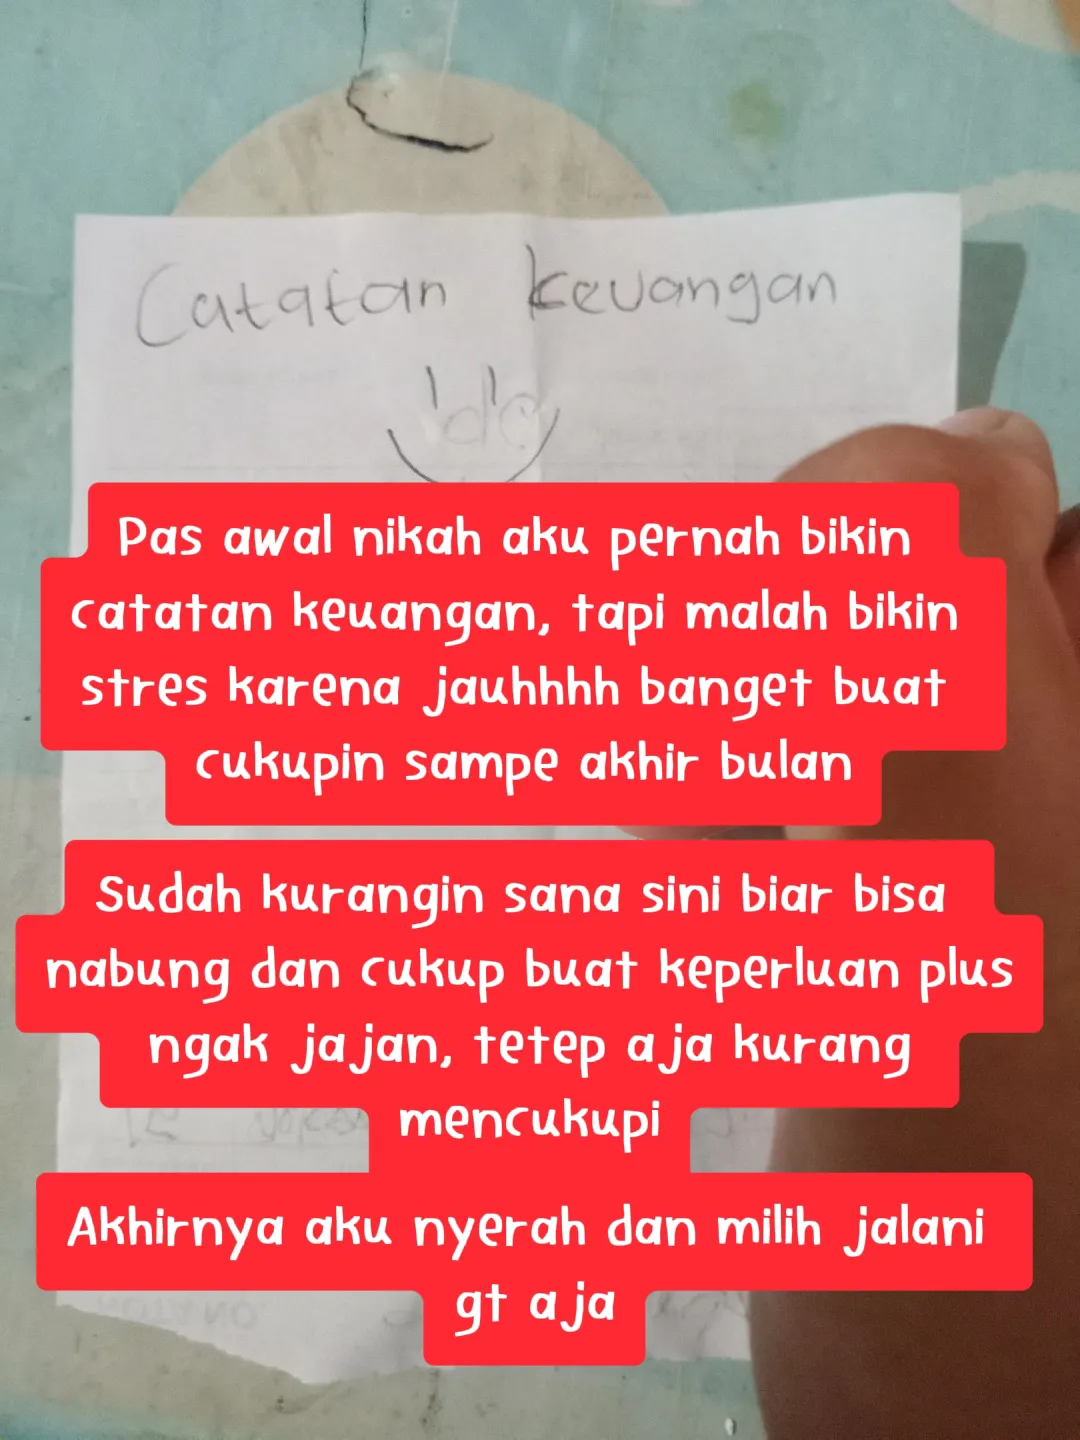 Catatan keuangan
Pas awal nikah aku pernah bikin
catatan keuangan, tapi malah bikin
stres karena jauhhhh banget buat
cukupin sampe akhir bulan
Sudah kurangin sana sini biar bisa
nabung dan cukup buat keperluan plus
ngak jajan, tetep aja kurang
mencukupi
Akhirnya aku nyerah dan milih jalani
gt aja